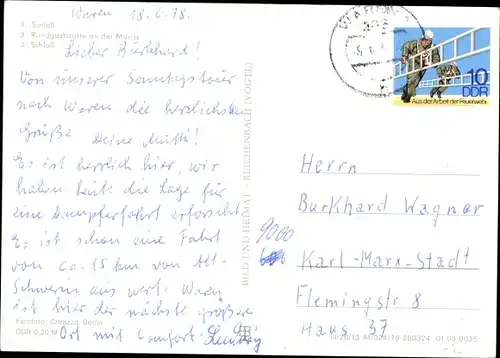 Waren 18.6.78.
1. Schloß
2. Rundgaststätte an der Müritz
3. Schloß
Lieber Burkhard!
Von unserer Sonntagstour
nach Waren die herzlichsten
Grüße Deine Mutti!
Es ist herrlich hier, wir
haben heute die Lage für
eine Dampferfahrt erforscht
Es ist schon eine Fahrt
von ca. 15 km von Alt-
Schwerin aus wert. Waren
ist hier der nächste größere
Ort mit Comfort.
Farbfoto: Corazza, Berlin
DDR 0,20 M
BILD UND HEIMAT REICHENBACH (VOGTL)
WAREN
10
DDR
Aus der Arbeit der Feuerwehr
Herrn
Burkhard Wagner
9000
Karl-Marx-Stadt
Flemingstr 8
Haus 37
280324 01 09 0035